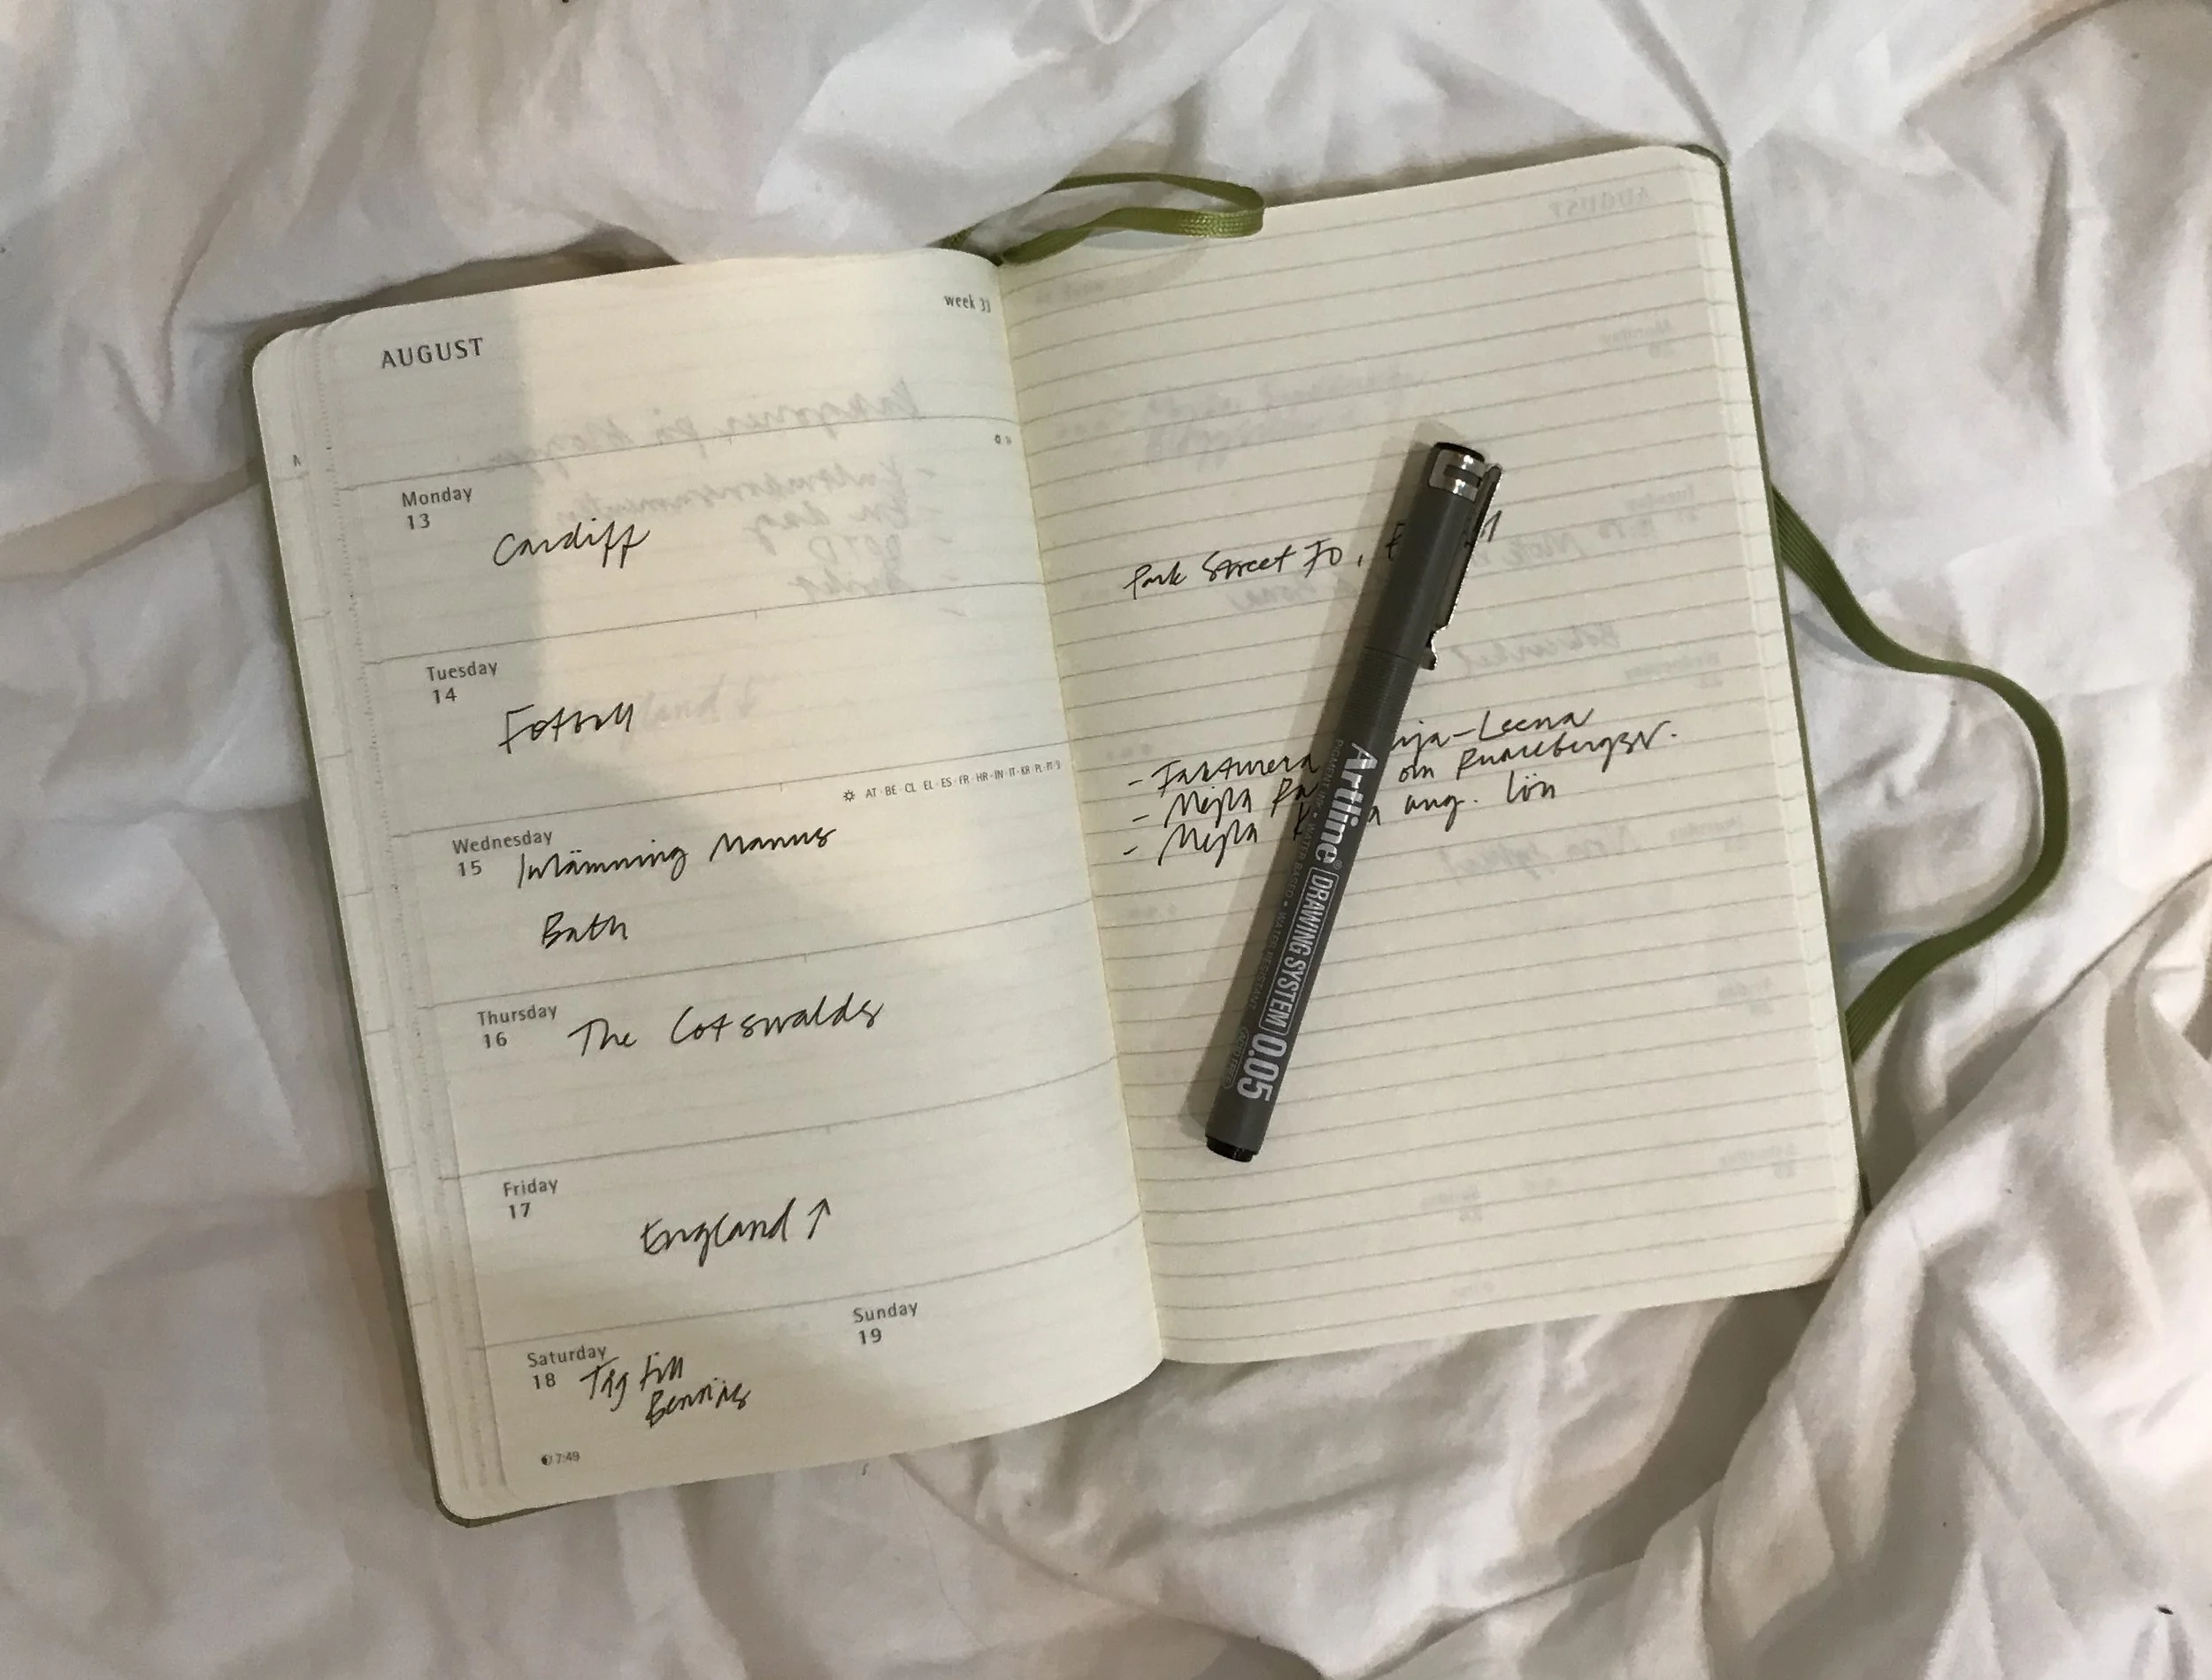 AUGUST
week 33
Monday
13
Cardiff
Tuesday
14
Fotboll
☼ AT·BE·CL·EL·ES·FR·HR·IN·IT·KR·PL·PT·
Wednesday
15
Inlämning Manus
Bath
Thursday
16
The Cotswalds
Friday
17
England ↑
Saturday
18
Tåg till
Bennäs
Sunday
19
7:49
Park Street 70,
- Fakturera ija-Leena
- Mejla om Runebergsv.
- Mejla ang. lön
Artline DRAWING SYSTEM 0.05
PIGMENT INK • WATER BASED • WATER RESISTANT